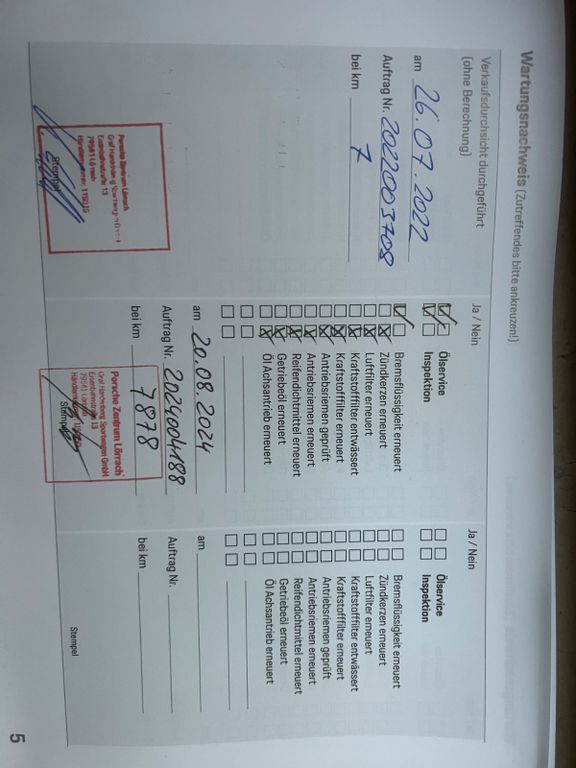 Wartungsnachweis (Zutreffendes bitte ankreuzen!)
Verkaufsdurchsicht durchgeführt
(ohne Berechnung)
am 26.07.2022
Auftrag Nr. 2022003708
bei km 7
Porsche Zentrum Lörrach
Graf Hardenberg Sportwagen GmbH
Eisenbahnstraße 13
79541 Lörrach
Stempel
Ja / Nein
Ölservice
Inspektion
Bremsflüssigkeit erneuert
Zündkerzen erneuert
Luftfilter erneuert
Kraftstofffilter entwässert
Kraftstofffilter erneuert
Antriebsriemen geprüft
Antriebsriemen erneuert
Reifendichtmittel erneuert
Getriebeöl erneuert
Öl Achsantrieb erneuert
am 20.08.2024
Auftrag Nr. 2024004188
bei km 7878
Porsche Zentrum Lörrach
Graf Hardenberg Sportwagen GmbH
Eisenbahnstraße 13
79541 Lörrach
Stempel
Ja / Nein
Ölservice
Inspektion
Bremsflüssigkeit erneuert
Zündkerzen erneuert
Luftfilter erneuert
Kraftstofffilter entwässert
Kraftstofffilter erneuert
Antriebsriemen geprüft
Antriebsriemen erneuert
Reifendichtmittel erneuert
Getriebeöl erneuert
Öl Achsantrieb erneuert
am
Auftrag Nr.
bei km
Stempel
5